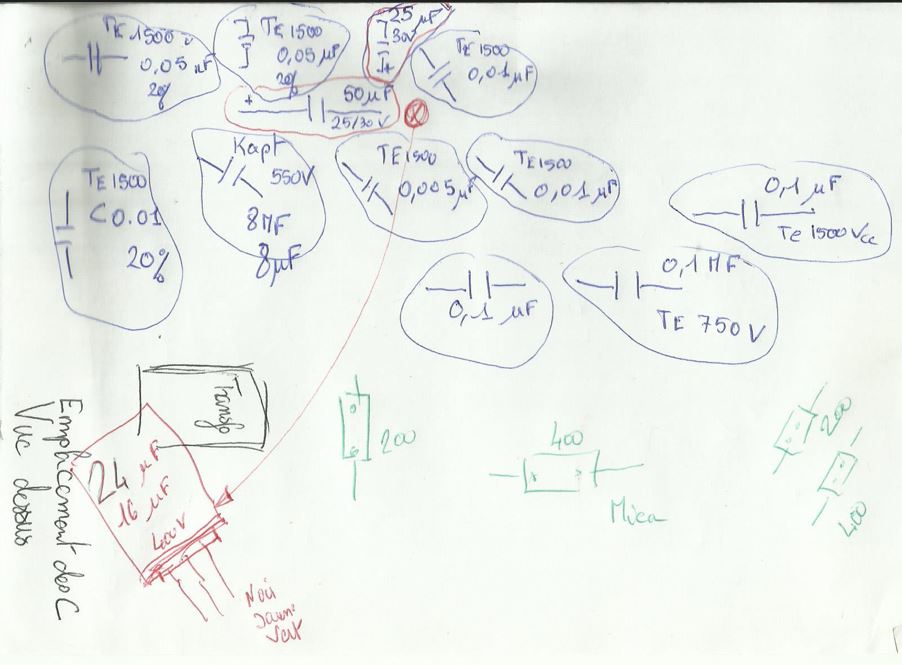 TE 1500 v
0,05 µF
20%
TE 1500
0,05 µF
20%
25 µF
30V
+
TE 1500
0,01 µF
+
50 µF
25/30 V
TE 1500
C 0.01
20%
550V
8MF
8µF
TE 1500
0,005 µF
TE 1500
0,01 µF
0,1 µF
Te 1500 Vcc
0,1 µF
0,1 MF
TE 750 V
Transfo
24 µF
16 µF
400V
Noir
Jaune
Vert
Emplacement des C
Vue dessus
200
400
Mica
200
400